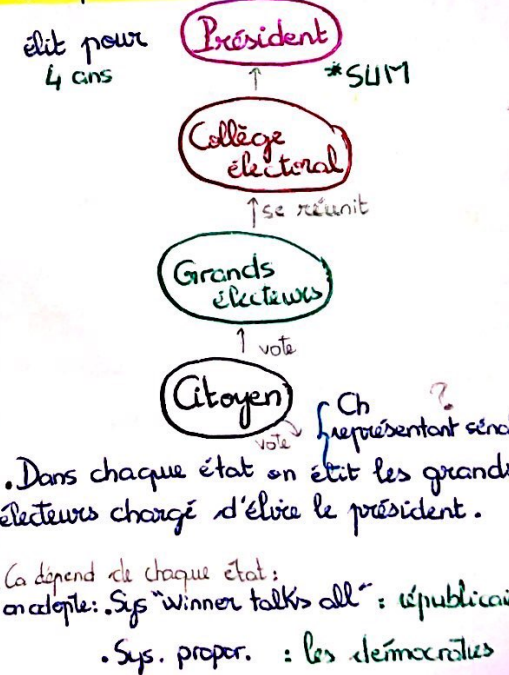 élit pour
4 ans
Président
*SUM
Collège
électoral
se réunit
Grands
électeurs
vote
Citoyen
vote
Ch ?
représentant
.Dans chaque état on élit les grands
électeurs chargé d'élire le président.
Ca dépend de chaque état:
on adopte: .Sys "winner talks all" : républicai
.Sys. propor. : les démocrates